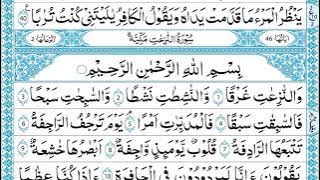 يَنْظُرُ الْمَرْءُ مَا قَدَّمَتْ يَدَاهُ وَيَقُولُ الْكَافِرُ يٰلَيْتَنِيْ كُنْتُ تُرٰبًا ۝٤٠
اٰيَاتُهَا 46 سُوْرَةُ النّٰزِعٰتِ مَكِّيَّةٌ رُكُوْعَاتُهَا 2
بِسْمِ اللّٰهِ الرَّحْمٰنِ الرَّحِيْمِ
وَالنّٰزِعٰتِ غَرْقًا ۝١ وَّالنّٰشِطٰتِ نَشْطًا ۝٢ وَّالسّٰبِحٰتِ سَبْحًا ۝٣
فَالسّٰبِقٰتِ سَبْقًا ۝٤ فَالْمُدَبِّرٰتِ اَمْرًا ۝٥ يَوْمَ تَرْجُفُ الرَّاجِفَةُ ۝٦
تَتْبَعُهَا الرَّادِفَةُ ۝٧ قُلُوْبٌ يَّوْمَئِذٍ وَّاجِفَةٌ ۝٨ اَبْصَارُهَا خَاشِعَةٌ ۝٩
يَقُوْلُوْنَ ءَاِنَّا لَمَرْدُوْدُوْنَ فِي الْحَافِرَةِ ۝١٠ ءَاِذَا كُنَّا عِظَامًا